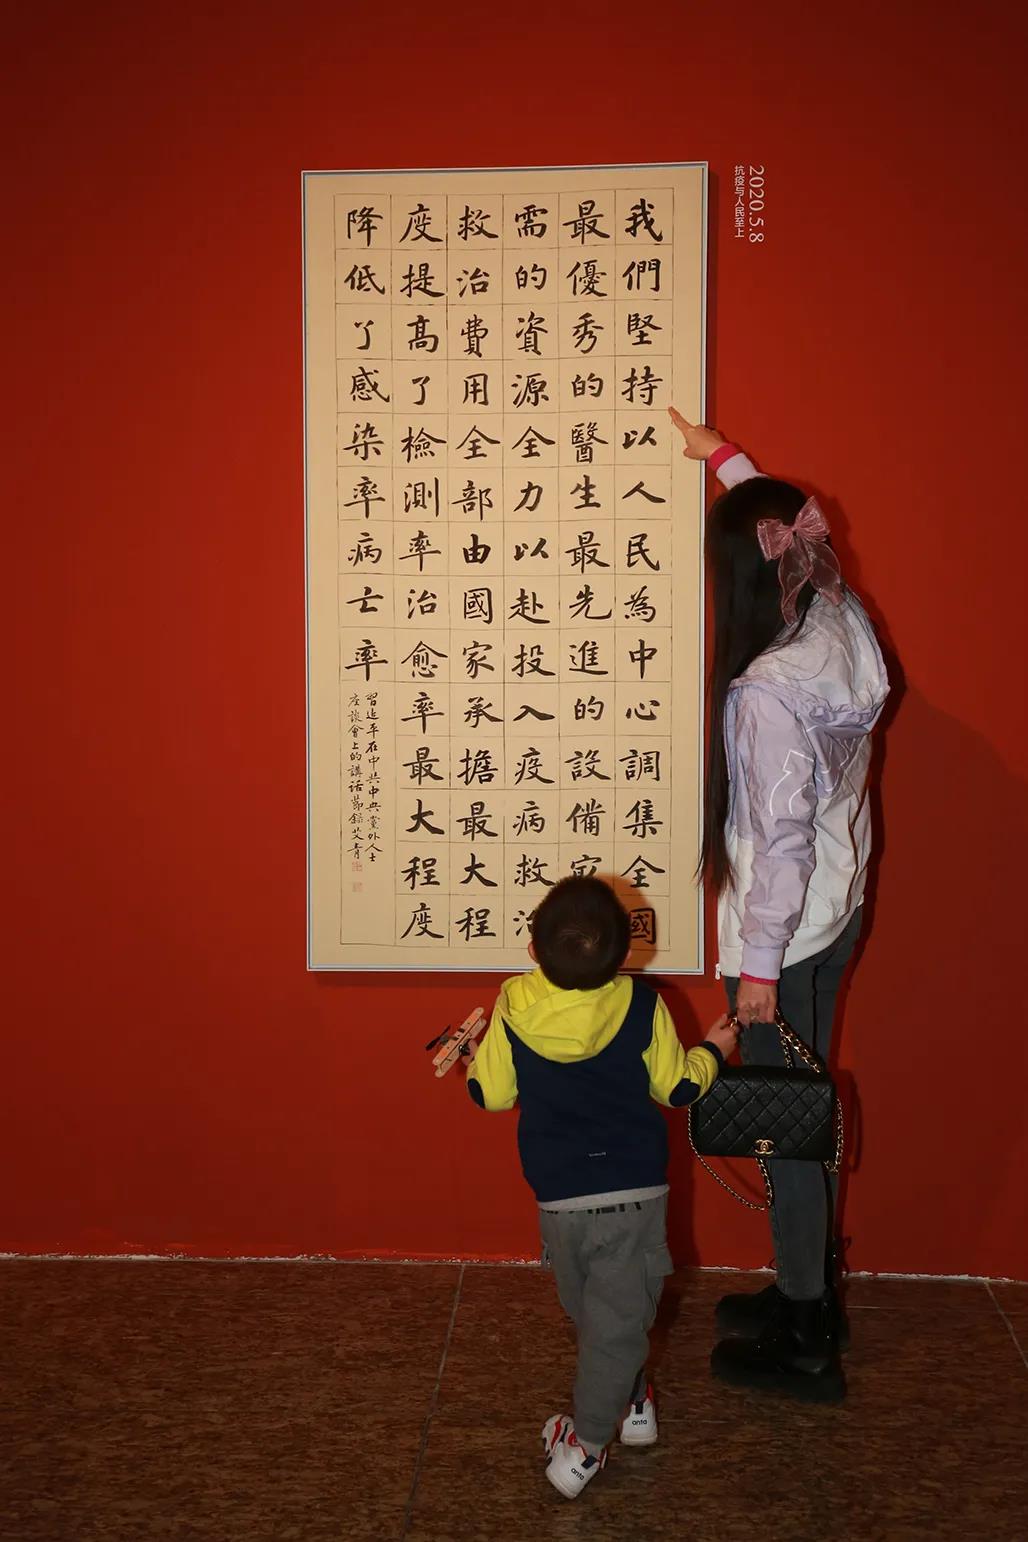 我們堅持以人民為中心調集全國
最優秀的醫生最先進的設備
需的資源全力以赴投入疫病救治
救治費用全部由國家承擔最大程
度提高了檢測率治愈率最大程度
降低了感染率病亡率
習近平在中共中央黨外人士
座談會上的講話節錄艾青
2020.5.8
抗疫与人民至上
anta
anta